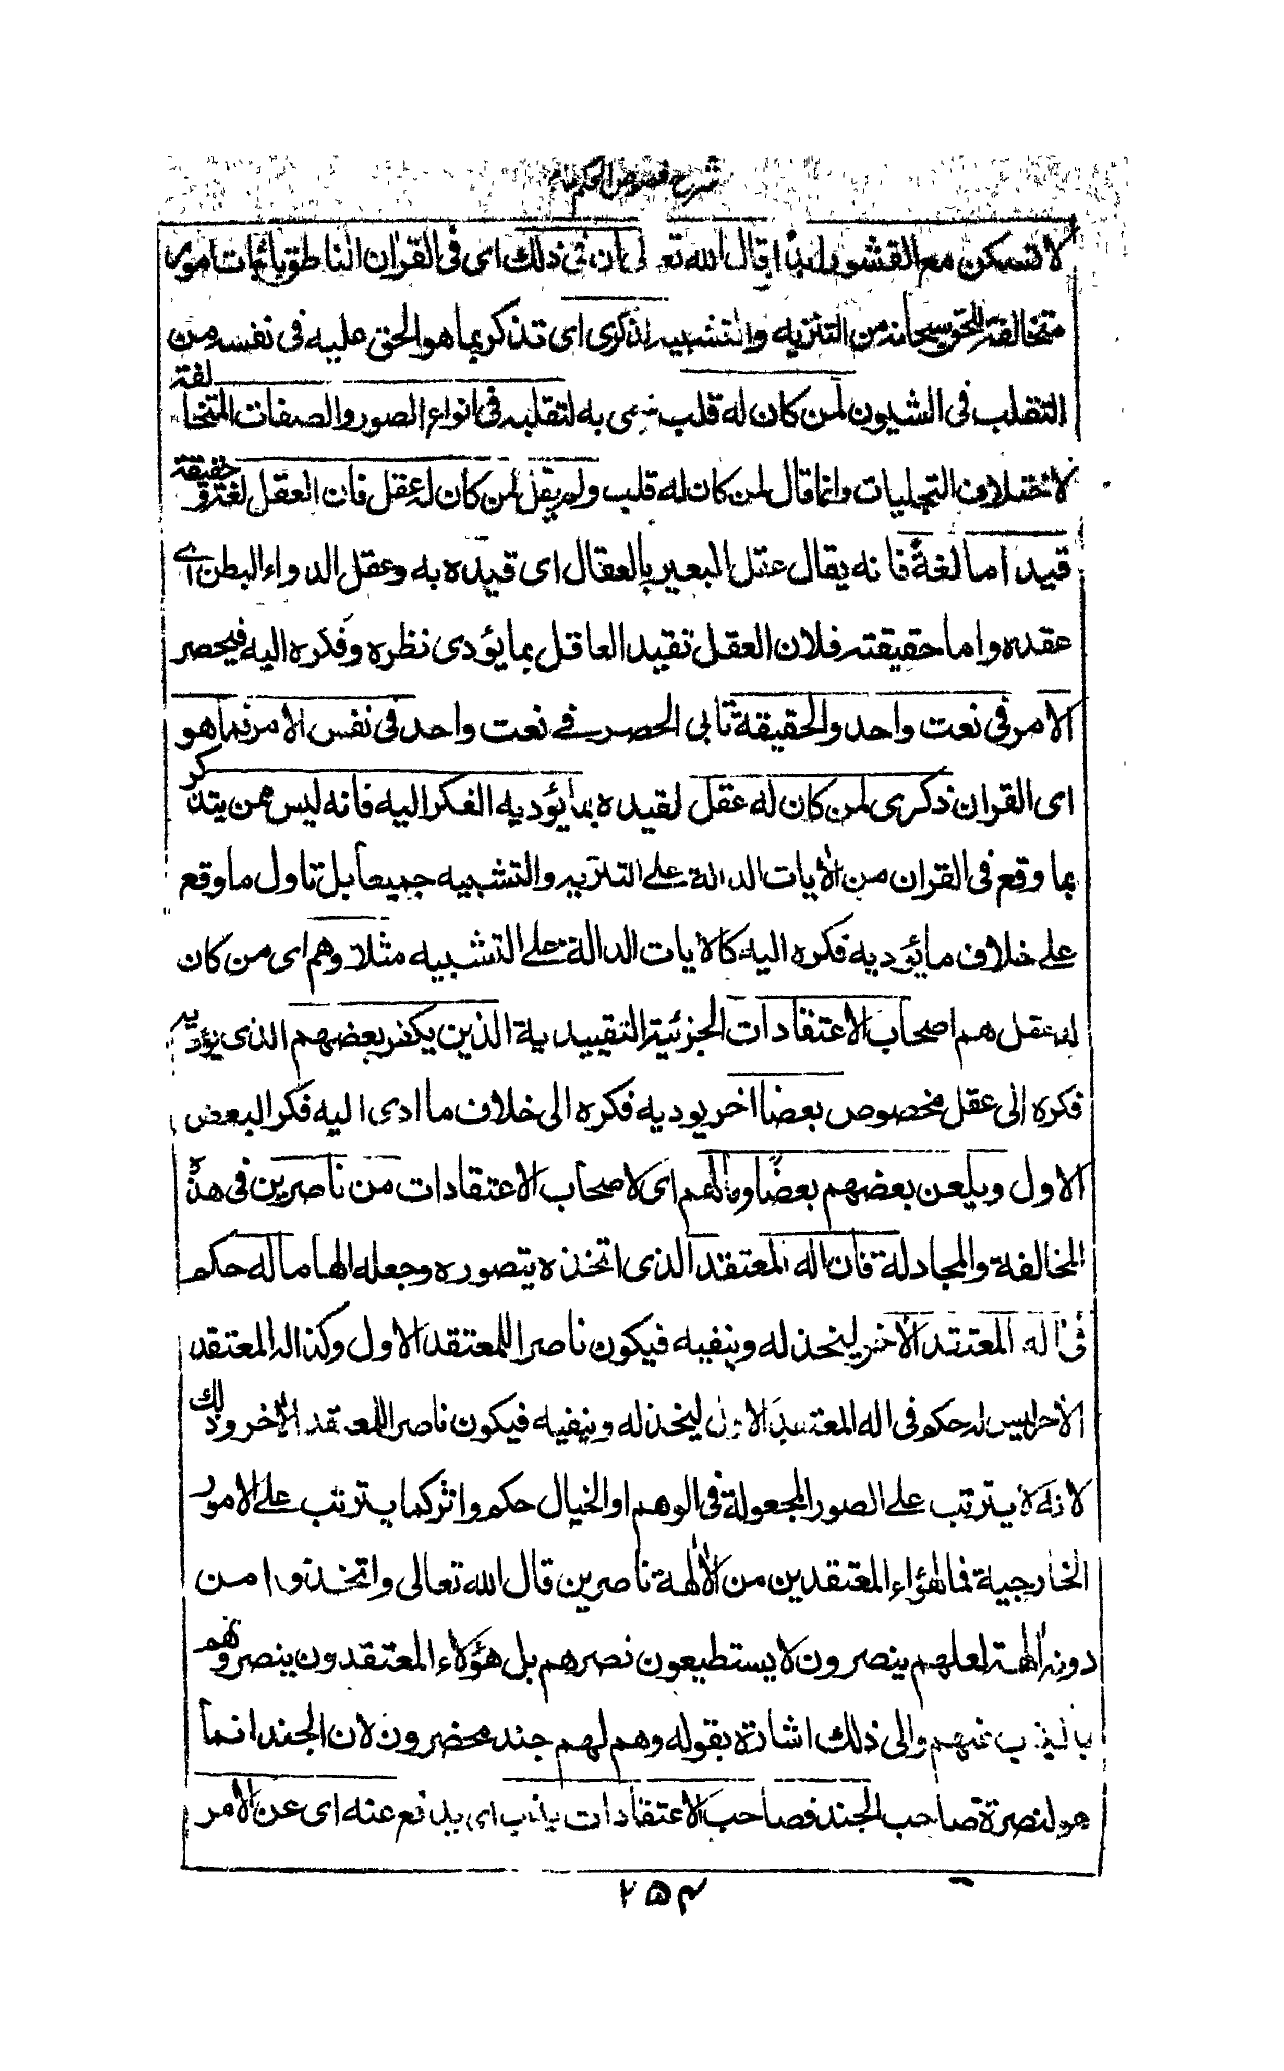 شرح فصوص الحكم
لا تسكن مع القشور ابدا قال الله تعالى ان فى ذلك اى فى القران الناطق باثبات امور
متخالفة للحق سبحانه من التنزيه والتشبيه لذكرى اى تذكر بما هو الحق عليه فى نفسه من
التقلب فى الشيون لمن كان له قلب سمى به لتقلبه فى انواع الصور والصفات المتخالفة
لاختلاف التجليات وانما قال لمن كان له قلب ولم يقل لمن كان له عقل فان العقل لغة وحقيقة
قيد اما لغة فانه يقال عقل البعير بالعقال اى قيده به وعقل الدواء البطن اے
عقده واما حقيقته فلان العقل تقيد العاقل بما يؤدى نظره وفكره اليه فيحصر
الامر فى نعت واحد والحقيقة تابى الحصر فے نعت واحد فى نفس الامر فما هو
اى القران ذكرى لمن كان له عقل لقيده بما يؤديه الفكر اليه فانه ليس ممن يتذكر
بما وقع فى القران من الأيات الدالة علے التنزيه والتشبيه جميعا بل تاول ما وقع
علے خلاف ما يؤديه فكره اليه كالايات الدالة علے التشبيه مثلا وهم اى من كان
له عقل هم اصحاب الاعتقادات الجزئية التقييدية الذين يكفر بعضهم الذى يؤديه
فكره الى عقل مخصوص بعضا اخر يوديه فكره الى خلاف ما ادى اليه فكر البعض
الاول ويلعن بعضهم بعضا وما لهم اى لاصحاب الاعتقادات من ناصرين فى هذه
المخالفة والمجادلة فان اله المعتقد الذى اتخذه بتصوره وجعله الها ماله حكم
فى اله المعتقد الأخر ليخذله وينفيه فيكون ناصرا للمعتقد الاول وكذا اله المعتقد
الأخر ليس له حكم فى اله المعتقد الاول ليخذله وينفيه فيكون ناصرا للمعتقد الأخر وذلك
لانه لا يترتب على الصور المجعولة فى الوهم او الخيال حكم واثر كما يترتب علے الامور
الخارجية فما لهؤلاء المعتقدين من الألهة ناصرين قال الله تعالى واتخذوا من
دونه ألهة لعلهم ينصرون لا يستطيعون نصرهم بل هؤلاء المعتقدون ينصرونهم
بالذب عنهم والى ذلك اشارة بقوله وهم لهم جند محضرون لان الجند انما
هو لنصرة صاحب الجند فصاحب الاعتقادات يذب اى يدفع عنه اى عن الامر
۲۵۴